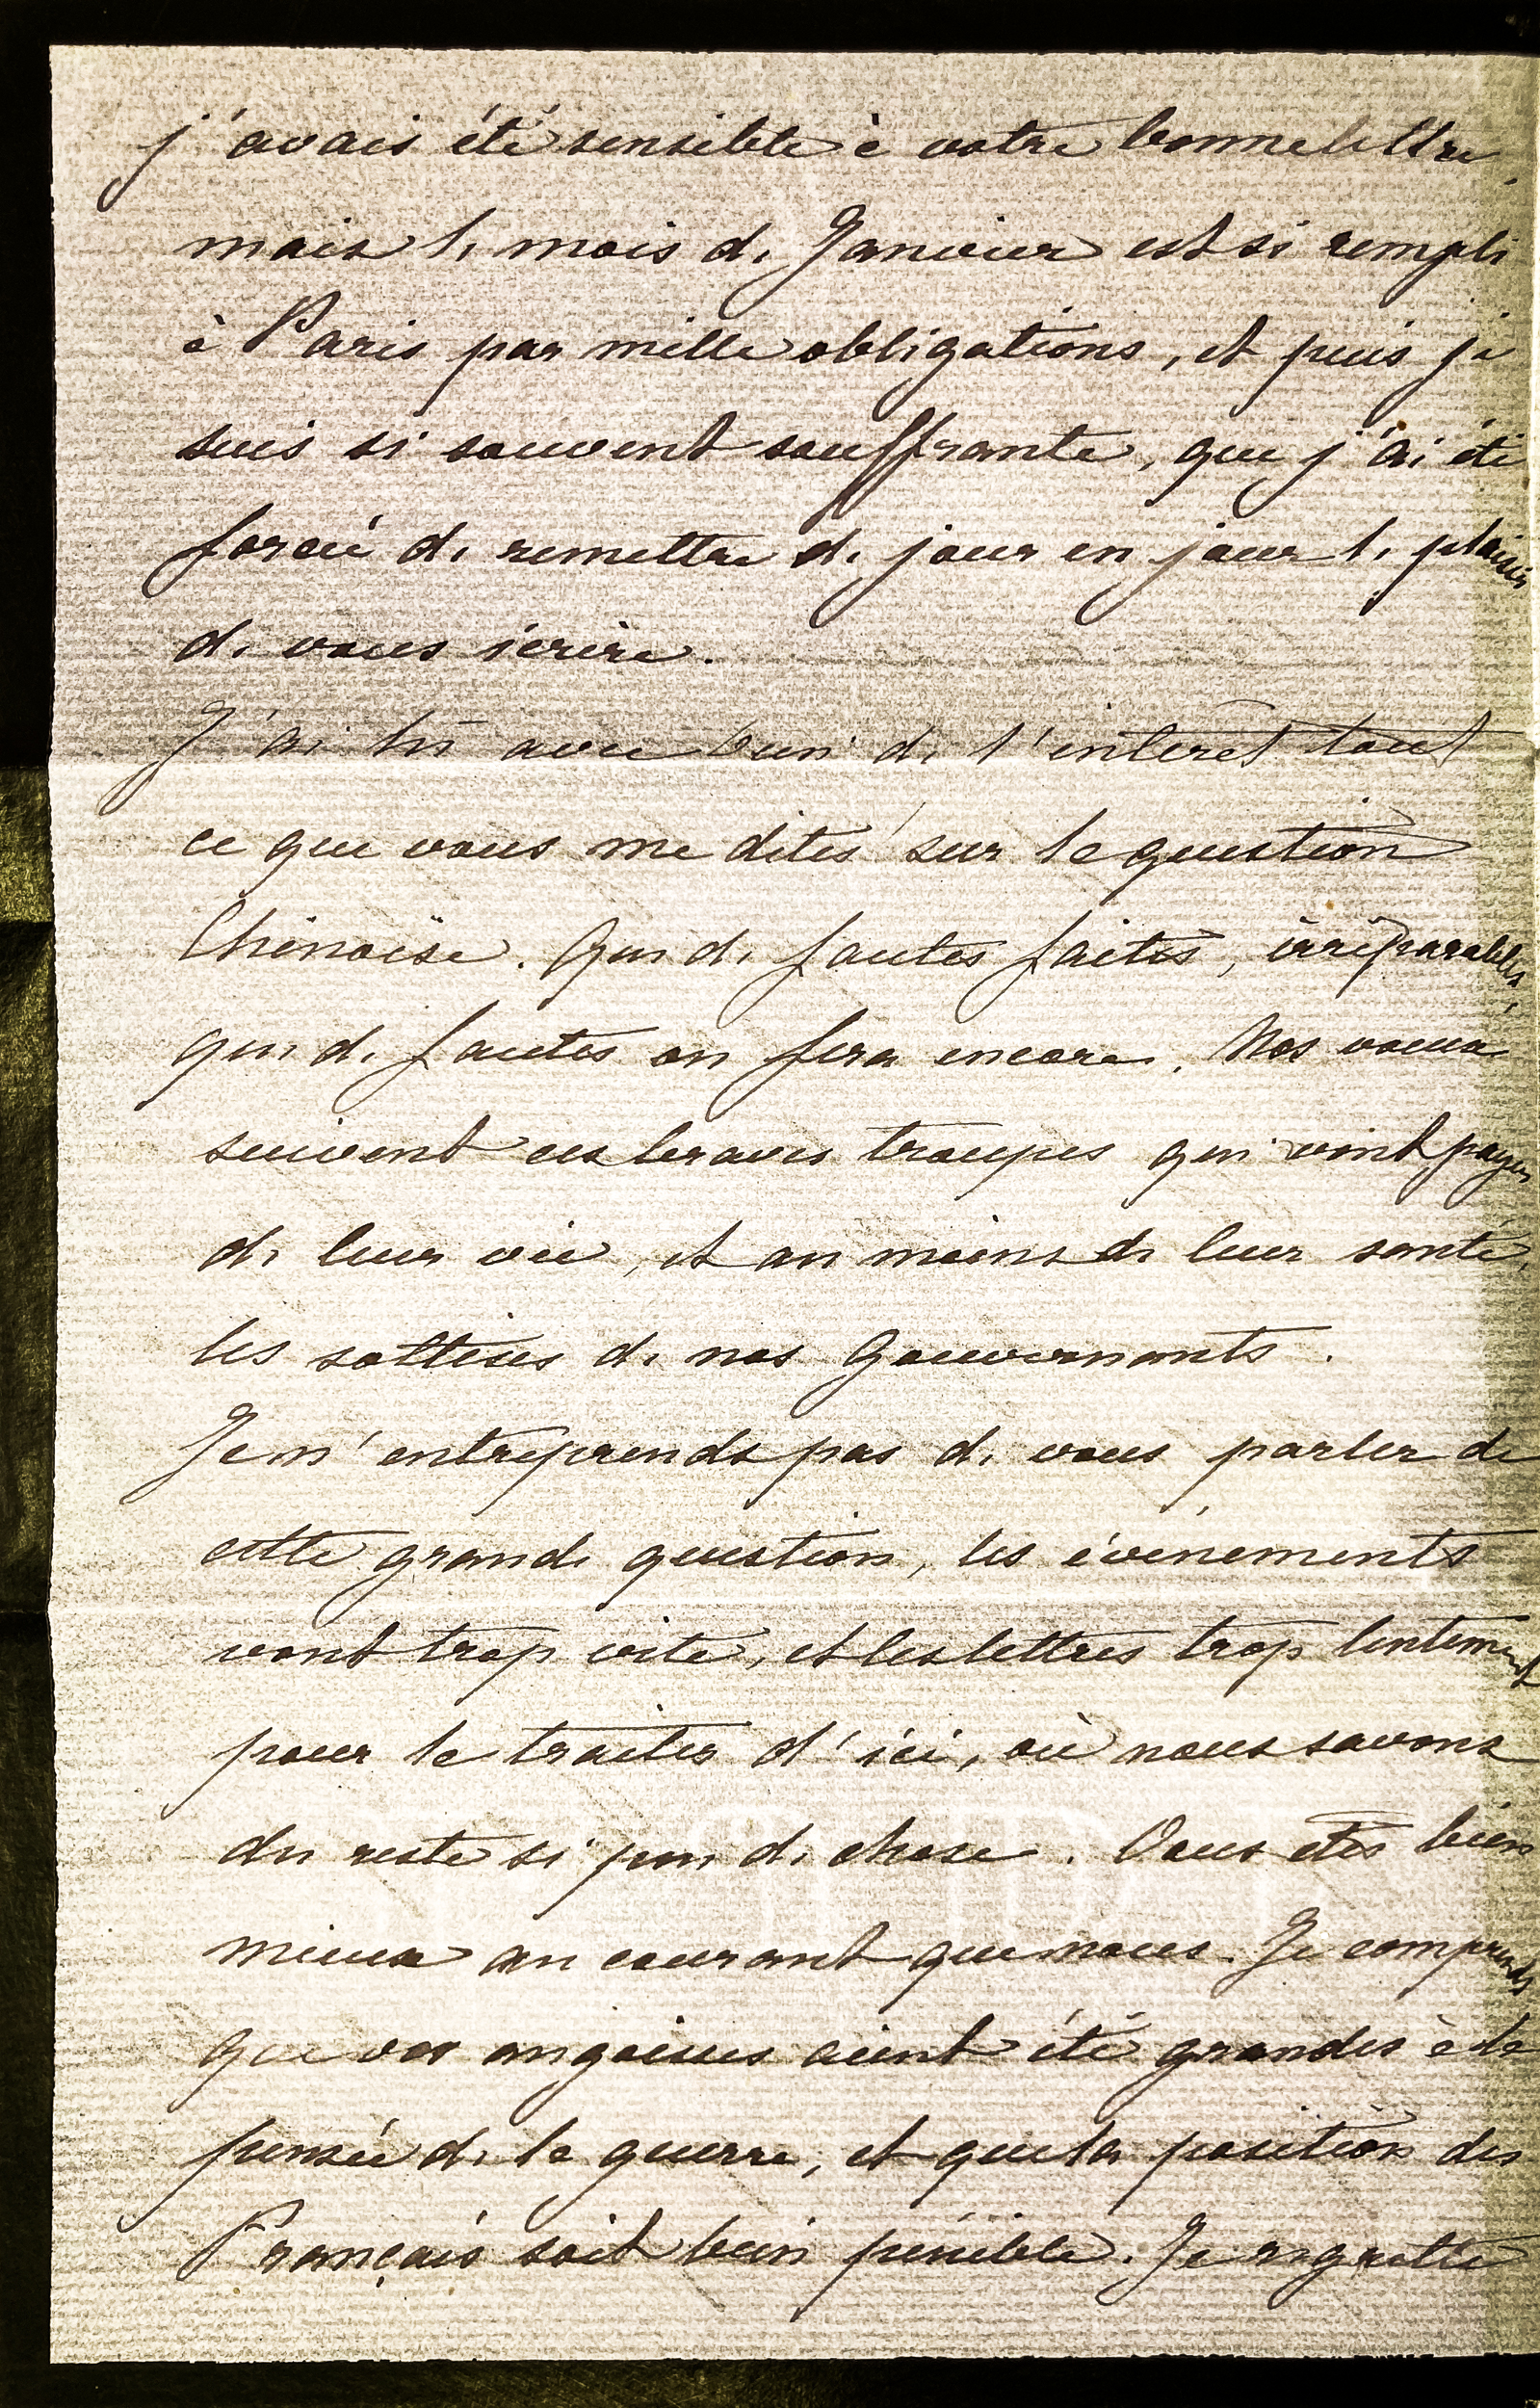 j'avais été sensible à votre bonne lettre,
mais le mois de Janvier est si rempli
à Paris par mille obligations, et puis je
suis si souvent souffrante, que j'ai été
forcée de remettre de jour en jour le plaisir
de vous écrire.
J'ai lu avec bien de l'intérêt tout
ce que vous me dites sur la question
Chinoise. Que de fautes faites, irréparables,
que de fautes on fera encore. Nos voeux
suivent ces braves troupes qui vont payer
de leur vie, et au moins de leur santé,
les sottises de nos Gouvernants.
Je n'entreprends pas de vous parler de
cette grande question, les évènements
vont trop vite, et les lettres trop lentement
pour la traiter d'ici, où nous savons
du reste si peu de chose. Vous êtes bien
mieux au courant que nous. Je comprends
que vos angoisses aient été grandes à la
pensée de la guerre, et que la position des
Français soit bien pénible. Je regrette